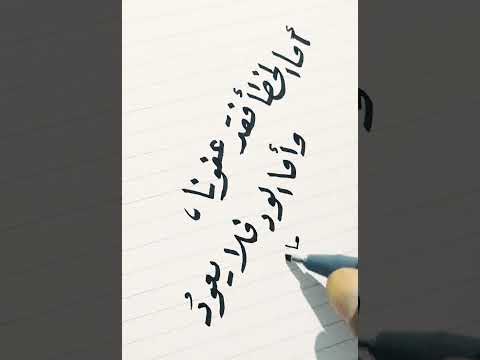 أما الخطأ فقد عفونا،
وأما الود فلا يعودُ